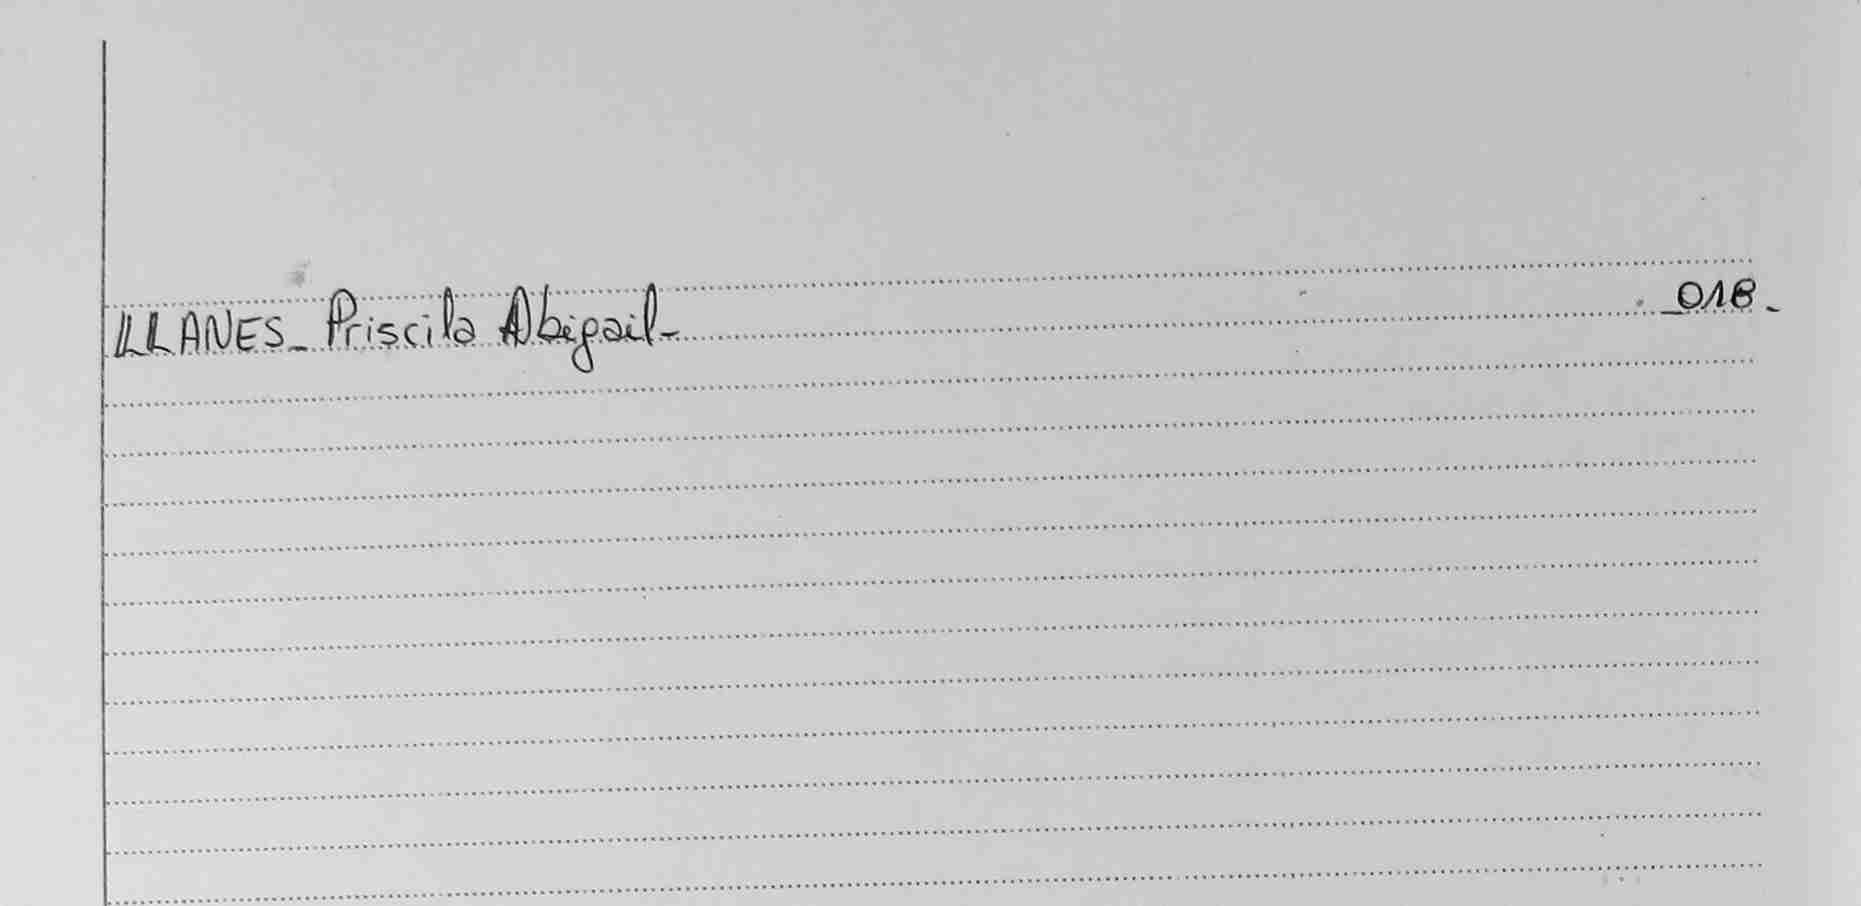 LLANES_ Priscila Abigail- _018_